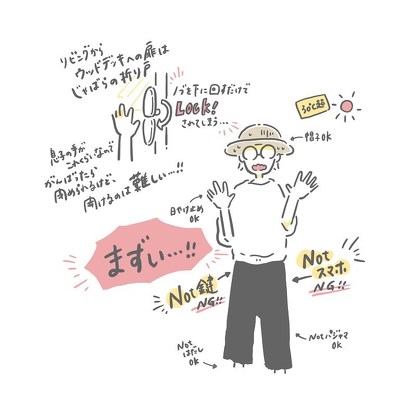 リビングから
ウッドデッキへの扉は
じゃばらの折り戸
ノブを下に回すだけで
LOCK!
されてしまう…
30℃超
帽子OK
息子の手が
これくらいなので
がんばったら
閉められるけど、
開けるのは難しい…!!
日やけ止め
OK
まずい…!!
Not鍵
NG!!
Not
スマホ
NG!!
Not
はだし
OK
Notパジャマ
OK